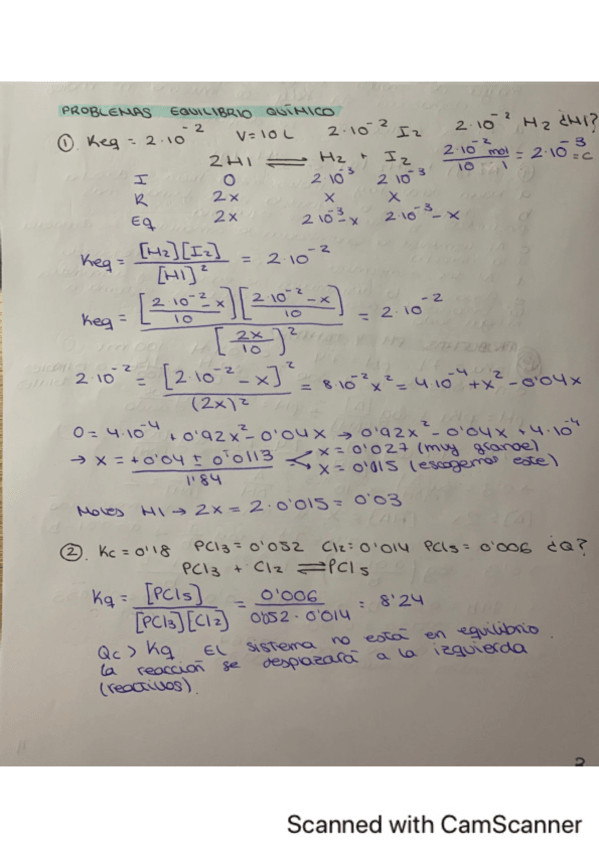 PROBLEMAS EQUILIBRIO QUÍMICO
① Keq = 2·10⁻² V=10L 2·10⁻² I₂ 2·10⁻² H₂ ¿HI?
2HI ⇌ H₂ + I₂ 2·10⁻² mol / 10 l = 2·10⁻³ = C
I 0 2·10⁻³ 2·10⁻³
R 2x x x
EQ 2x 2·10⁻³-x 2·10⁻³-x
Keq = [H₂][I₂] / [HI]² = 2·10⁻²
Keq = [2·10⁻²-x / 10][2·10⁻²-x / 10] / [2x / 10]² = 2·10⁻²
2·10⁻² = [2·10⁻²-x]² / (2x)² = 8·10⁻²x² = 4·10⁻⁴ + x² - 0'04x
0 = 4·10⁻⁴ + 0'92x² - 0'04x → 0'92x² - 0'04x + 4·10⁻⁴
→ x = +0'04 ± 0'0113 / 1'84 x = 0'027 (muy grande)
x = 0'015 (escogemos este)
Moles HI → 2x = 2·0'015 = 0'03
② Kc = 0'18 PCl₃ = 0'052 Cl₂ = 0'014 PCl₅ = 0'006 ¿Q?
PCl₃ + Cl₂ ⇌ PCl₅
Kq = [PCl₅] / [PCl₃][Cl₂] = 0'006 / 0'052·0'014 = 8'24
Qc > Kq El sistema no está en equilibrio.
La reacción se desplazará a la izquierda
(reactivos).
Scanned with CamScanner